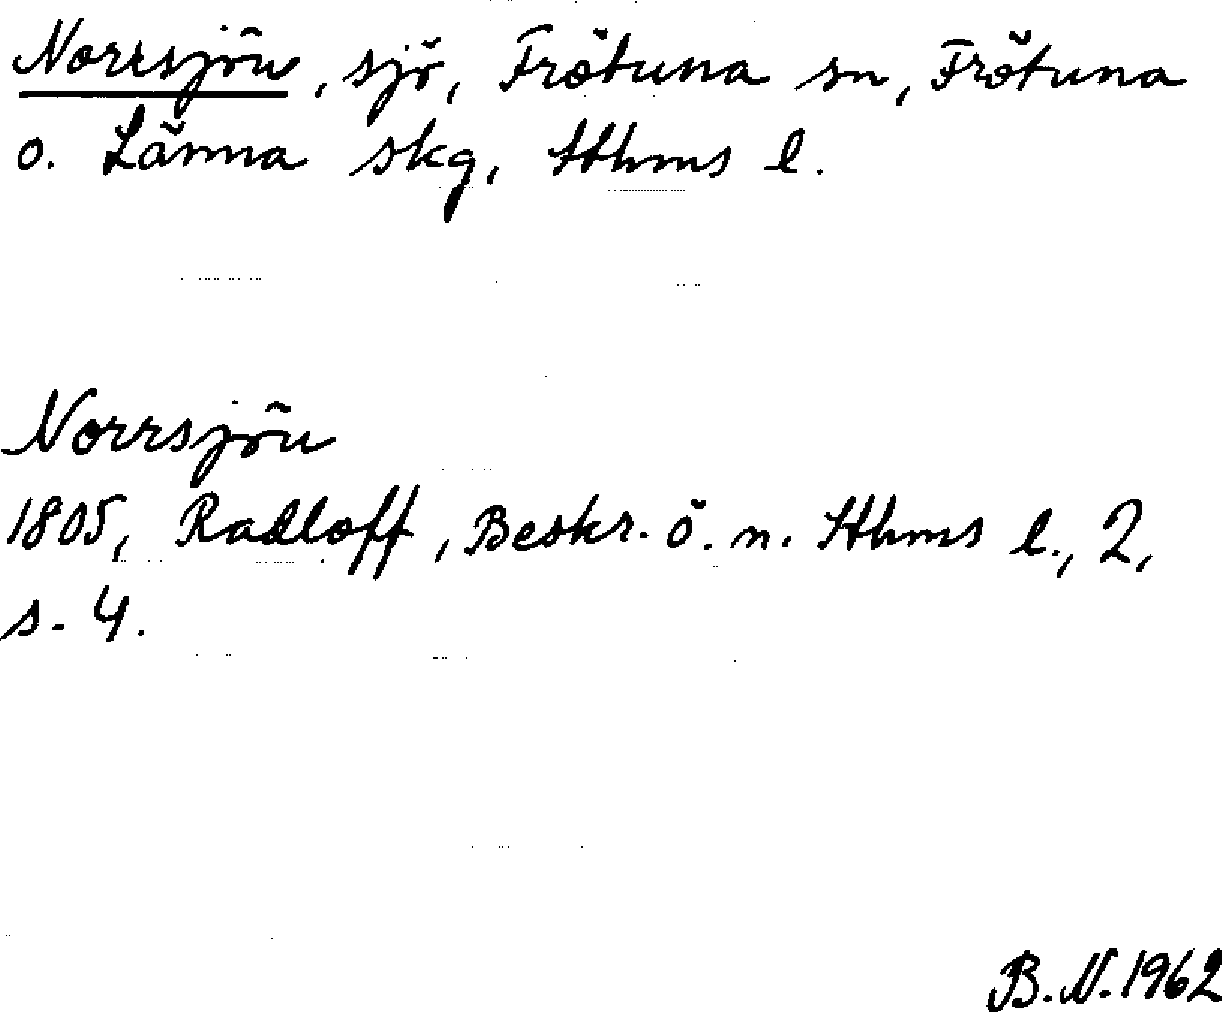 Norrsjön, sjö, Frötuna sn, Frötuna
o. Länna skg, Sthms l.
Norrsjön
1805, Radloff, Beskr. ö. n. Sthms l., 2,
s. 4.
B.N. 1962